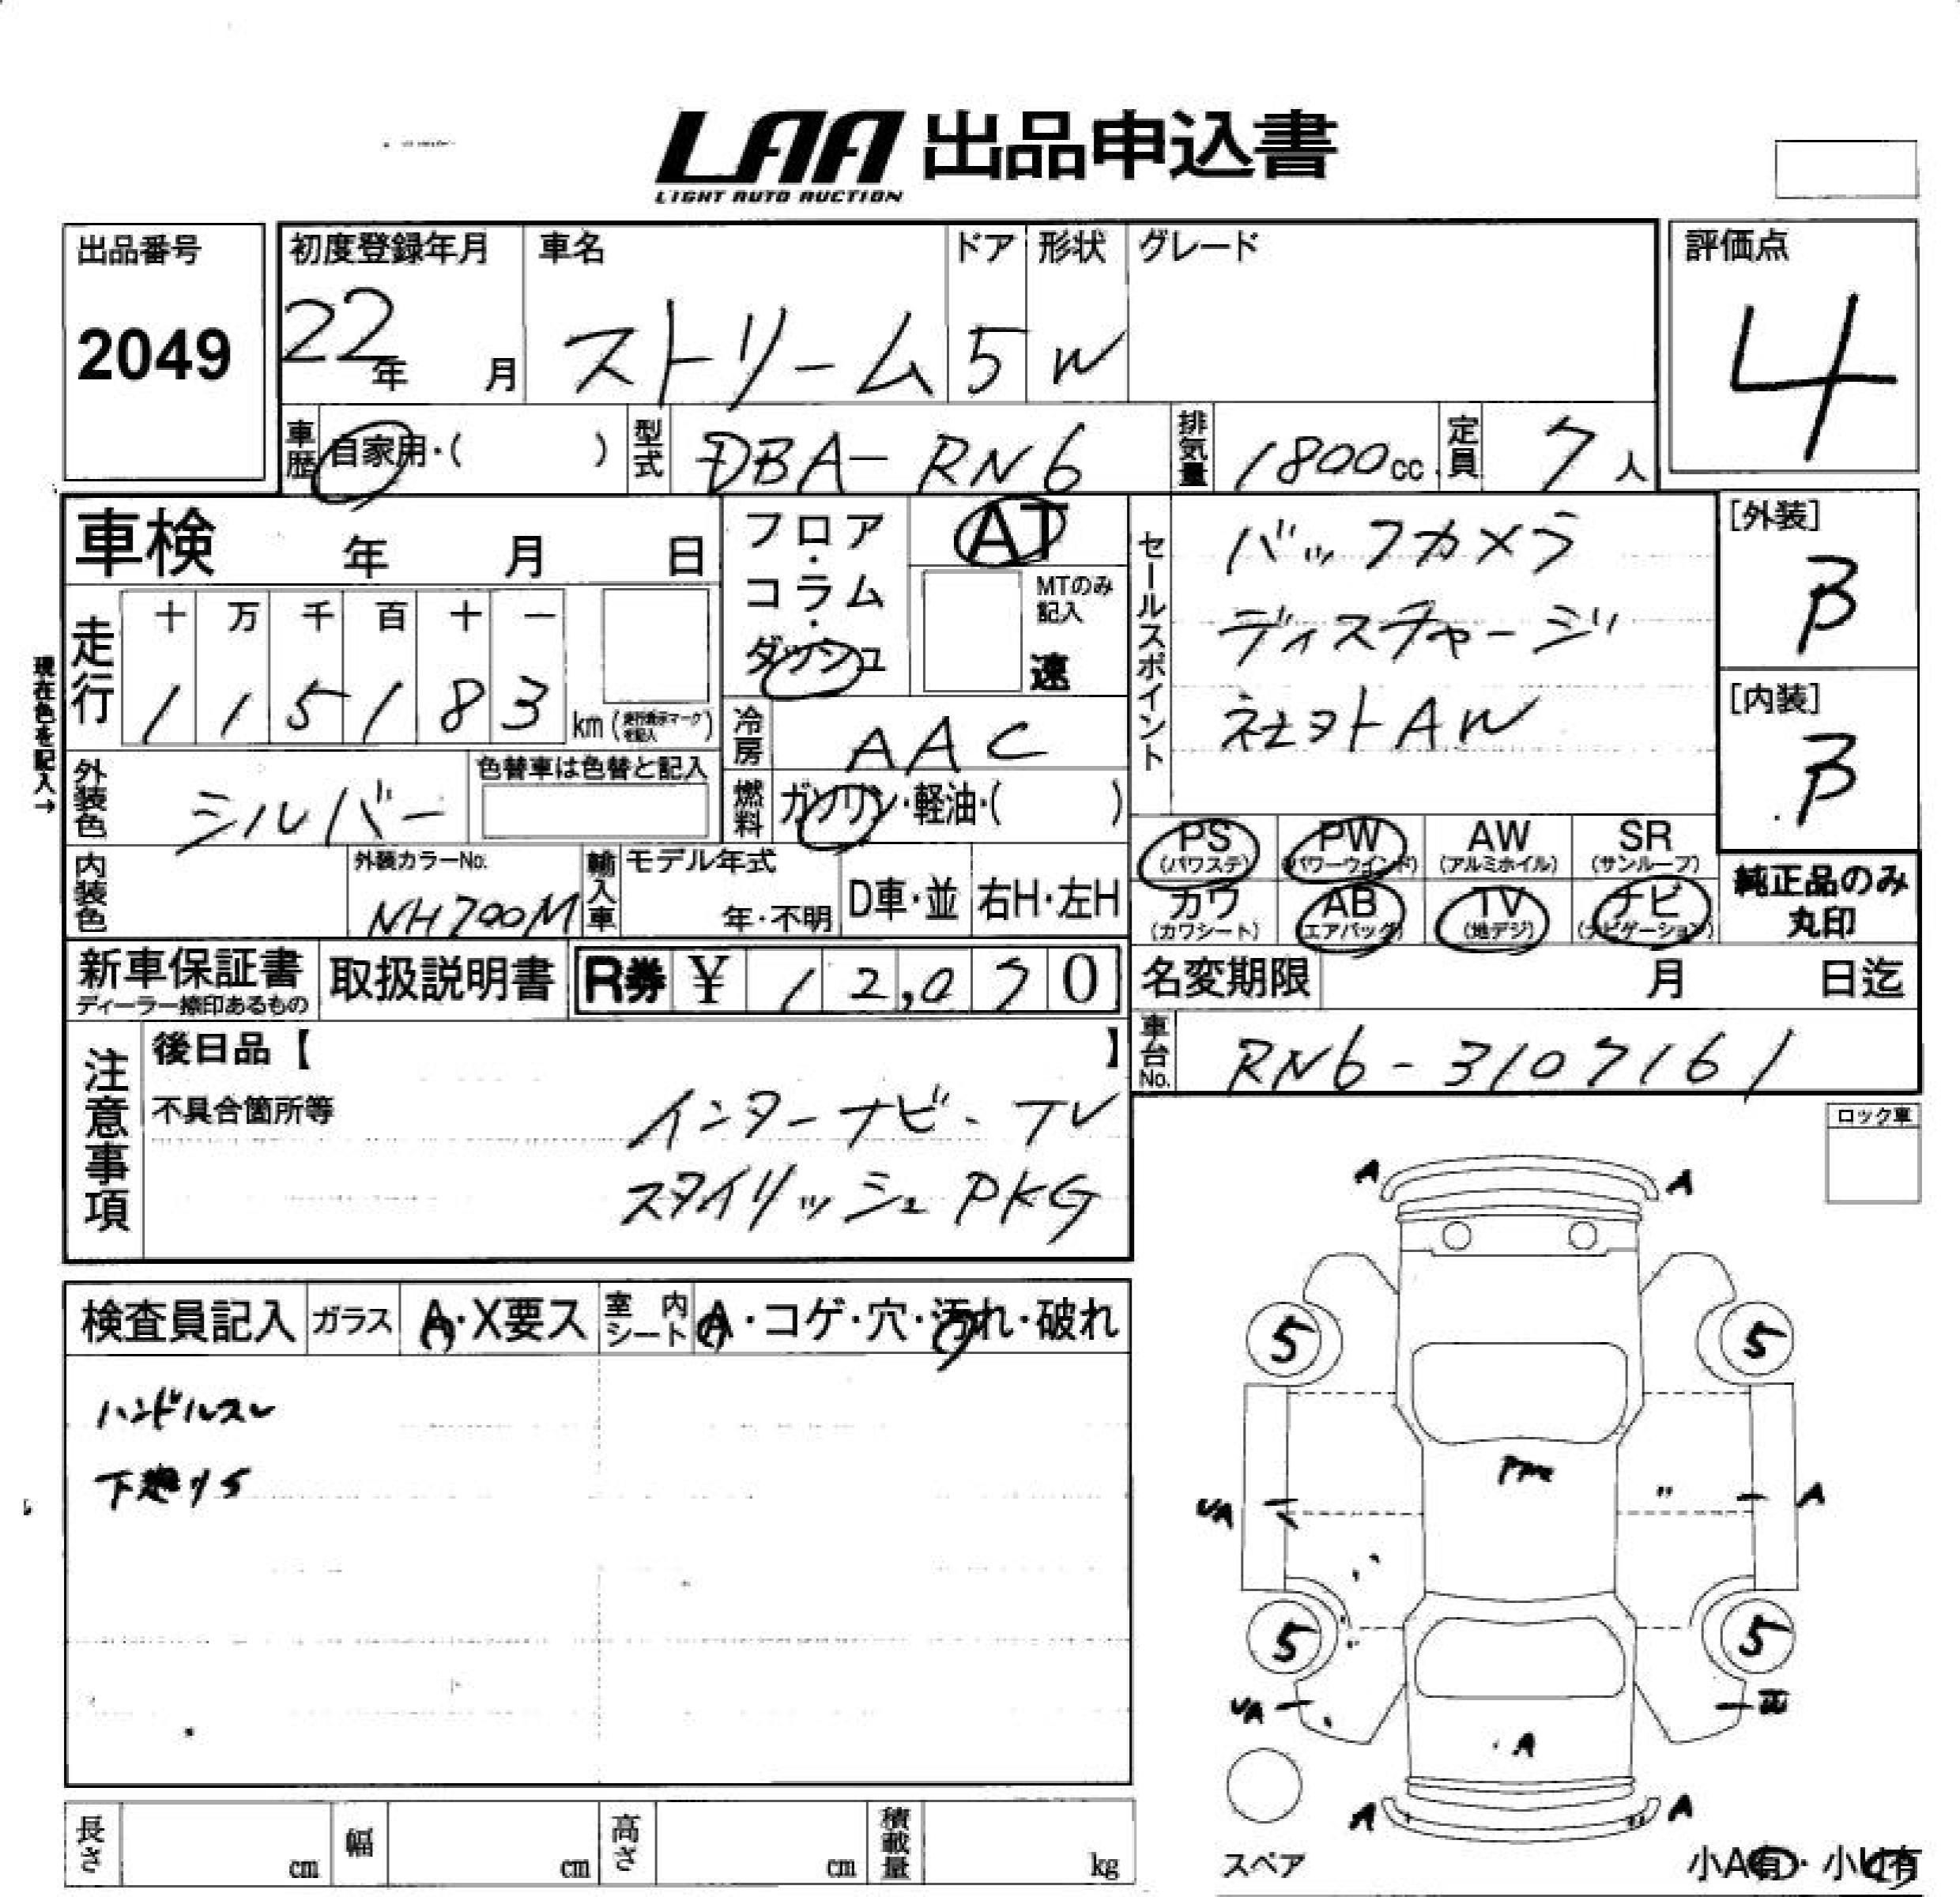 LAA 出品申込書
LIGHT AUTO AUCTION
出品番号 初度登録年月 車名 ドア 形状 グレード 評価点
2049 22年 月 ストリーム 5 W 4
車歴 自家用・( ) 型式 DBA-RN6 排気量 1800cc 定員 7人
車検 年 月 日 フロア・コラム・ダッシュ AT セールスポイント バックカメラ [外装]
MTのみ記入 速 ディスチャージ B
現在色を記入→
走行 十 万 千 百 十 一
1 1 5 1 8 3 km (走行表示マークを記入) 社外AW [内装]
冷房 AAC B
外装色 シルバー 色替車は色替と記入 燃料 ガソリン・軽油・( )
PS (パワステ) PW (パワーウインド) AW (アルミホイル) SR (サンルーフ)
内装色 外装カラーNo. NH700M 輸入車 モデル年式 年・不明 D車・並 右H・左H
カワ (カワシート) AB (エアバッグ) TV (地デジ) ナビ (ナビゲーション) 純正品のみ丸印
新車保証書 ディーラー捺印あるもの 取扱説明書 R券 ¥ 12,070 名変期限 月 日迄
注意事項 後日品【 】 車台No. RN6-3107161
不具合箇所等 インターナビ・TV
スタイリッシュPKG
ロック車
A A
検査員記入 ガラス A・X要ス 室内シート A・コゲ・穴・汚れ・破れ
5 5
ハンドルスレ
下廻りS
UA 〃 A
5 5
UA
・A
A A
長さ cm 幅 cm 高さ cm 積載量 kg
スペア 小A有・小U有